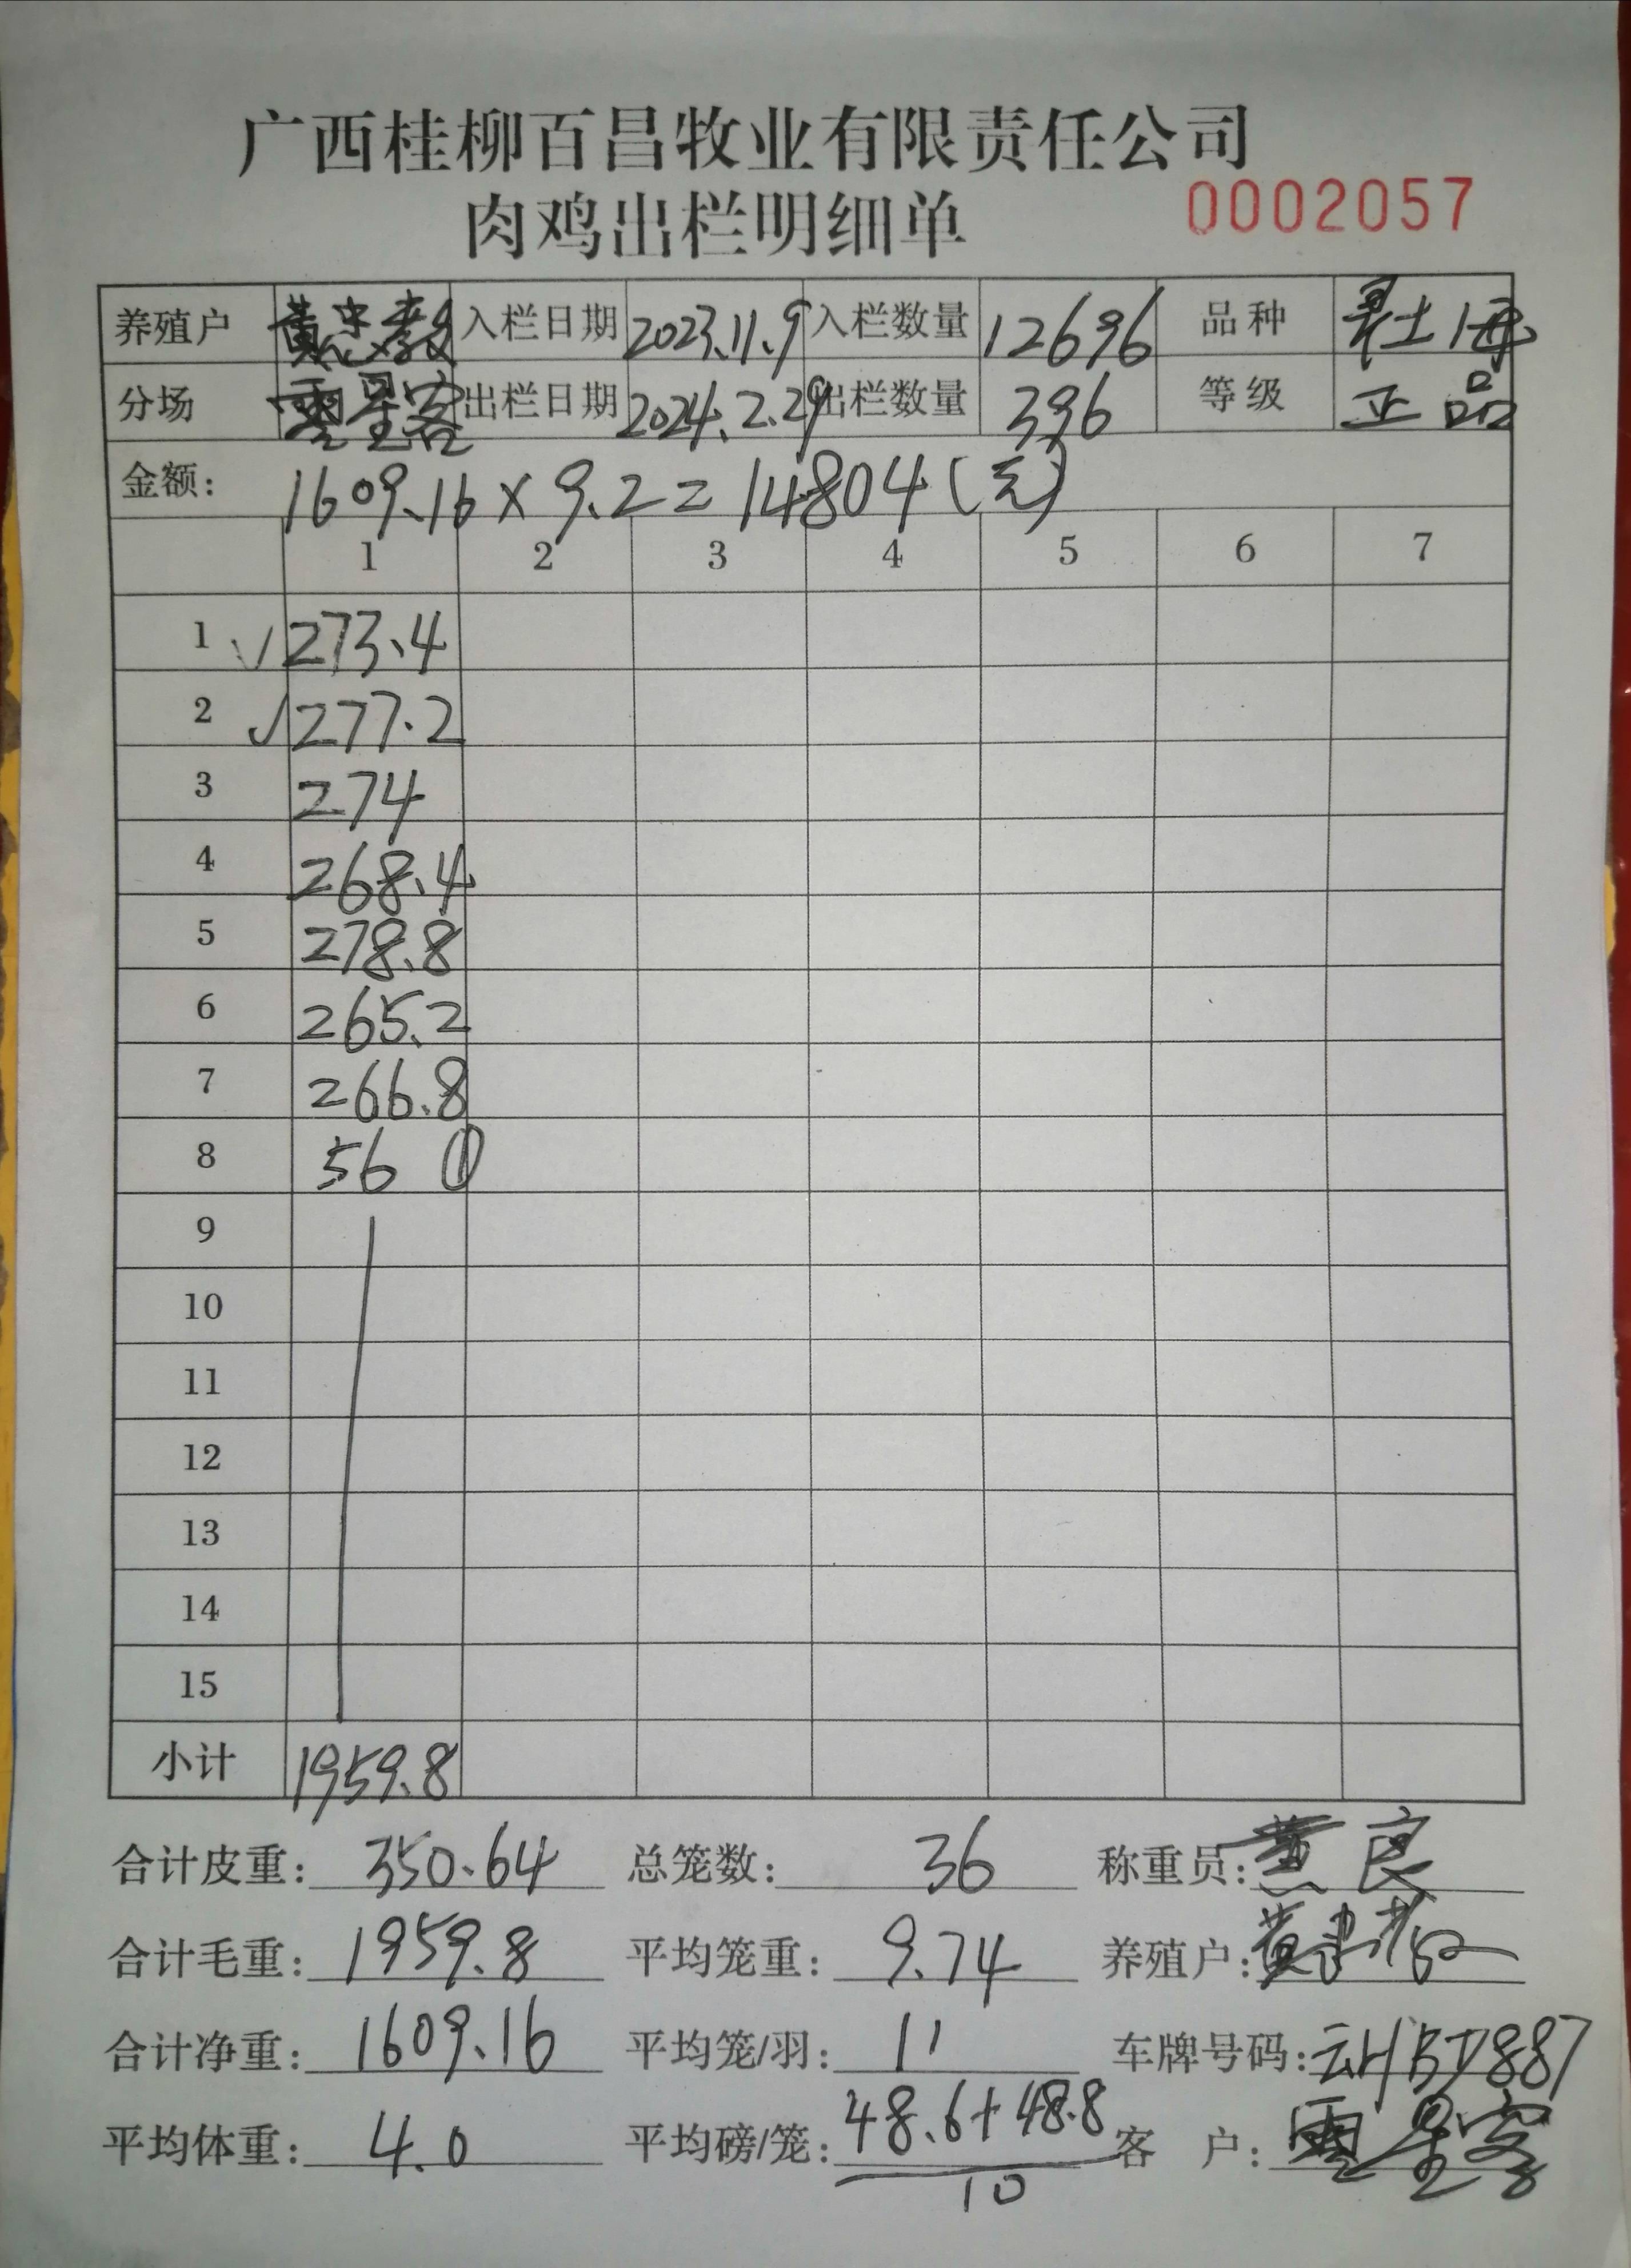 广西桂柳百昌牧业有限责任公司
肉鸡出栏明细单 0002057
养殖户 黄忠 入栏日期 2023.11.9 入栏数量 12696 品种 土
分场 出栏日期 2024.2.29 出栏数量 396 等级 正品
金额: 1609.16×9.2=14804(元)
1 2 3 4 5 6 7
1 √273.4
2 √277.2
3 274
4 268.4
5 278.8
6 265.2
7 266.8
8 56 ①
9
10
11
12
13
14
15
小计 1959.8
合计皮重: 350.64 总笼数: 36 称重员: 黄良
合计毛重: 1959.8 平均笼重: 9.74 养殖户: 黄
合计净重: 1609.16 平均笼/羽: 11 车牌号码: 云HBD887
平均体重: 4.0 平均磅/笼: 48.6+48.8 客户:
10